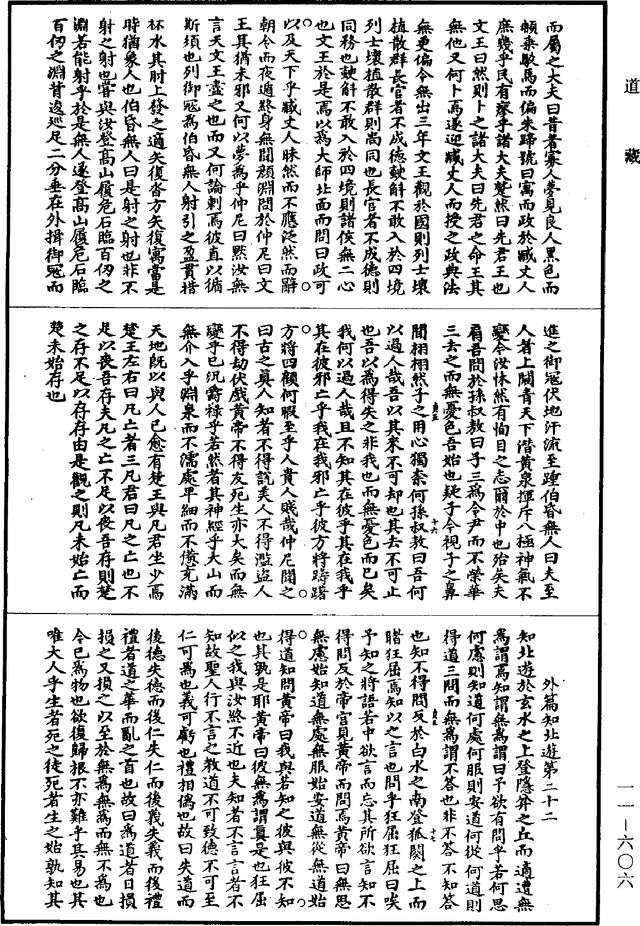 道藏
一一—六〇六
而屬之大夫曰昔者寡人夢見良人黑色而
䫇乘駁馬而偏朱蹄號曰寓而政於臧丈人
庶幾乎民有瘳乎諸大夫蹵然曰先君王也
文王曰然則卜之諸大夫曰先君之命王其
無他又何卜焉遂迎臧丈人而授之政典法
無更偏令無出三年文王觀於國則列士壞
植散群長官者不成德斔斛不敢入於四境
列士壞植散群則尚同也長官者不成德則
同務也斔斛不敢入於四境則諸侯無二心
也文王於是焉以為大師北面而問曰政可
以及天下乎臧丈人昧然而不應泛然而辭
朝令而夜遁終身無聞顏淵問於仲尼曰文
王其猶未邪又何以夢為乎仲尼曰默汝無
言夫文王盡之也而又何論刺焉彼直以循
斯須也列御寇為伯昏無人射引之盈貫措
杯水其肘上發之適矢復沓方矢復寓當是
時猶象人也伯昏無人曰是射之射也非不
射之射也嘗與汝登高山履危石臨百仞之
淵若能射乎於是無人遂登高山履危石臨
百仞之淵背逡巡足二分垂在外揖御寇而
進之御寇伏地汗流至踵伯昏無人曰夫至
人者上闚青天下潛黃泉揮斥八極神氣不
變今汝怵然有恂目之志爾於中也殆矣夫
肩吾問於孫叔敖曰子三為令尹而不榮華
三去之而無憂色吾始也疑子今視子之鼻
間栩栩然子之用心獨柰何孫叔敖曰吾何
以過人哉吾以其來不可却也其去不可止
也吾以為得失之非我也而無憂色而已矣
我何以過人哉且不知其在彼乎其在我乎
其在彼邪亡乎我在我邪亡乎彼方將躊躇
方將四顧何暇至乎人貴人賤哉仲尼聞之
曰古之真人知者不得說美人不得濫盜人
不得劫伏戲黃帝不得友死生亦大矣而無
變乎已況爵祿乎若然者其神經乎大山而
無介入乎淵泉而不濡處卑細而不憊充滿
天地既以與人已愈有楚王與凡君坐少焉
楚王左右曰凡亡者三凡君曰凡之亡也不
足以喪吾存夫凡之亡不足以喪吾存則楚
之存不足以存存由是觀之則凡未始亡而
楚未始存也
外篇知北遊第二十二
知北遊於玄水之上登隱弅之丘而適遭無
為謂焉知謂無為謂曰予欲有問乎若何思
何慮則知道何處何服則安道何從何道則
得道三問而無為謂不答也非不答不知答
也知不得問反於白水之南登狐闋之上而
睹狂屈焉知以之言也問乎狂屈狂屈曰唉
予知之將語若中欲言而忘其所欲言知不
得問反於帝宮見黃帝而問焉黃帝曰無思
無慮始知道無處無服始安道無從無道始
得道知問黃帝曰我與若知之彼與彼不知
也其孰是耶黃帝曰彼無為謂真是也狂屈
似之我與汝終不近也夫知者不言言者不
知故聖人行不言之教道不可致德不可至
仁可為也義可虧也禮相偽也故曰失道而
後德失德而後仁失仁而後義失義而後禮
禮者道之華而亂之首也故曰為道者日損
損之又損之以至於無為無為而無不為也
今已為物也欲復歸根不亦難乎其易也其
唯大人乎生者死之徒死者生之始孰知其